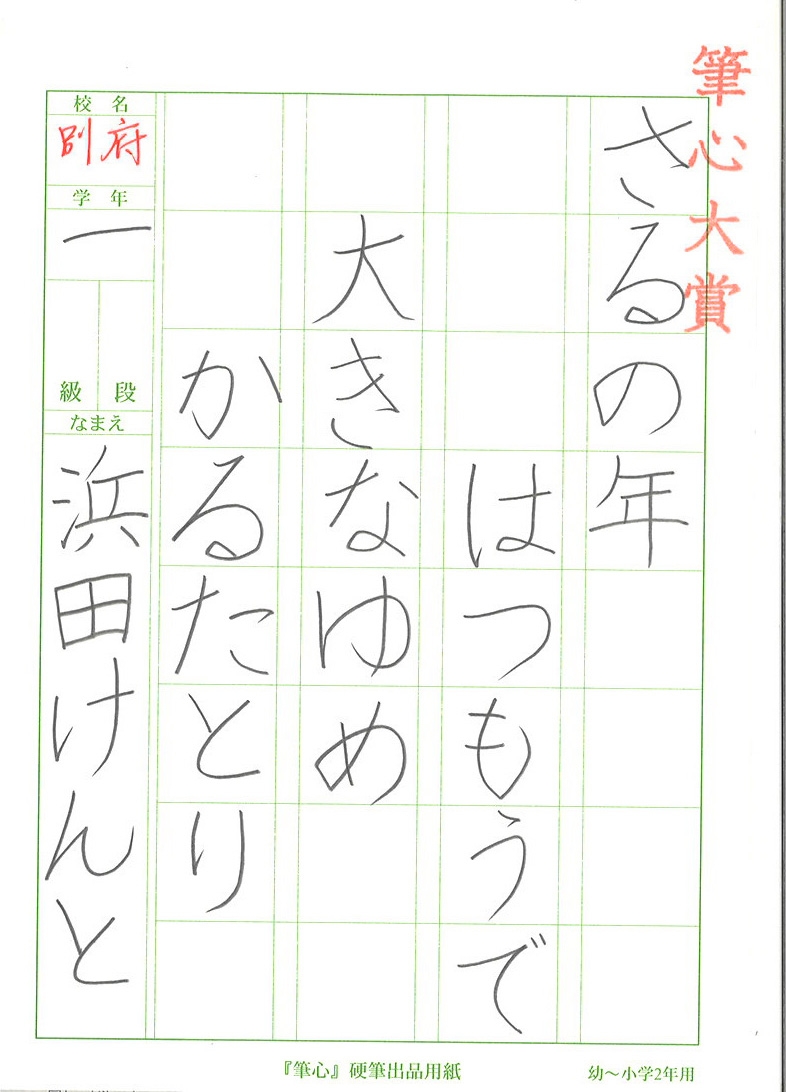 筆心大賞
さるの年
はつもうで
大きなゆめ
かるたとり
校名
別府
学年
一
級段
なまえ
浜田けんと
『筆心』硬筆出品用紙
幼～小学2年用